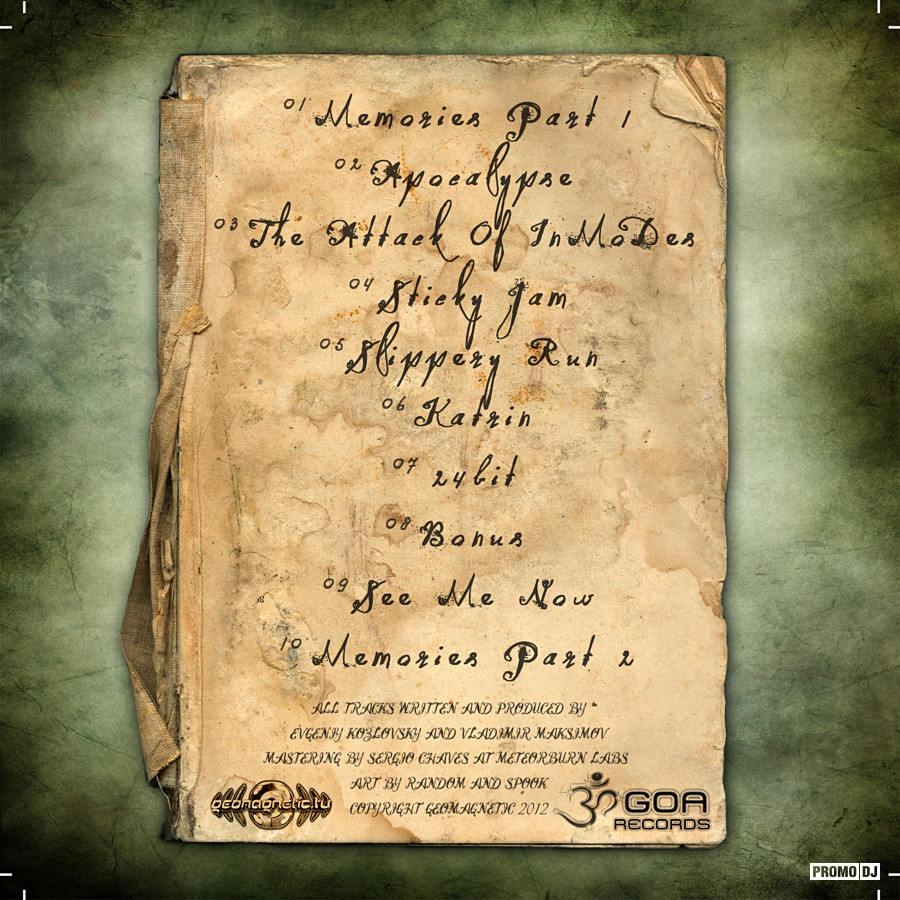 01 Memories Part 1
02 Apocalypse
03 The Attack Of InMoDes
04 Sticky Jam
05 Slippery Run
06 Katrin
07 24bit
08 Bonus
09 See Me Now
10 Memories Part 2
ALL TRACKS WRITTEN AND PRODUCED BY
EVGENIY KOZLOVSKY AND VLADIMIR MAKSIMOV
MASTERING BY SERGIO CHAVES AT METEORBURN LABS
ART BY RANDOM AND SPOOK
COPYRIGHT GEOMAGNETIC 2012
geomagnetic.tv
ॐ GOA
RECORDS
PROMO DJ